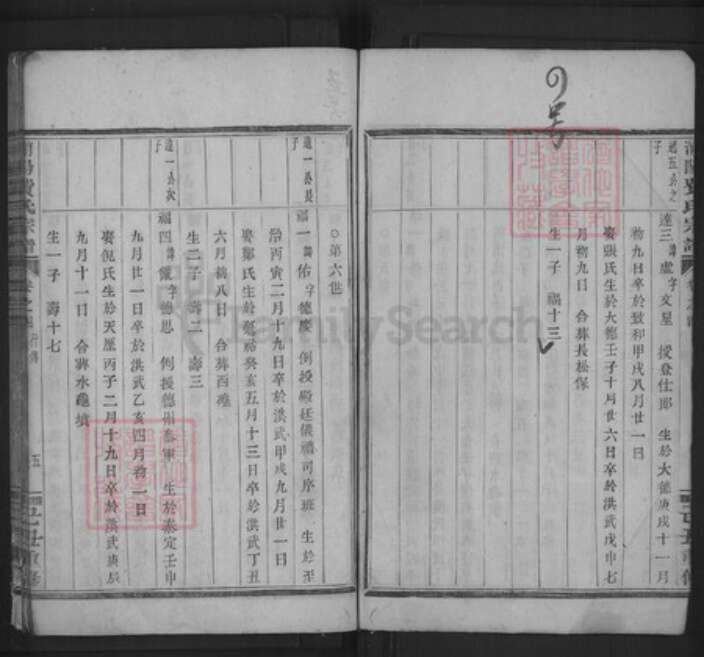 の号
達五公之子
達三 諱盧 字文星 授登仕郎 生於大德庚戌十一月
初九日卒於致和甲戌八月廿一日
娶張氏生於大德壬子十月廿六日卒於洪武戊申七
月初九日 合葬長松保
生一子 福十三
○第六世
達一公長子
福一 諱佑 字德陵 例授殿廷儀禮司序班 生於至
治丙寅二月十九日卒於洪武甲戌九月廿一日
娶鄭氏生於
癸亥五月十三日卒於洪武丁丑
六月初八日 合葬西礁
生二子 壽二 壽三
達一公次子
福四 諱 字德思 例授德州 生於泰定壬申
九月廿一日卒於洪武乙亥四月初一日
娶倪氏生於天曆丙子二月十九日卒於洪武庚辰
九月十一日 合葬水龜墳
生一子 壽十七
五
FamilySearch